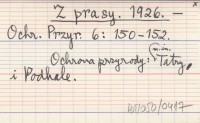 Z prasy. 1926. —
Ochr. Przyr. 6: 150–152.
Ochrona przyrody: (m.in. Tatry
i Podhale.